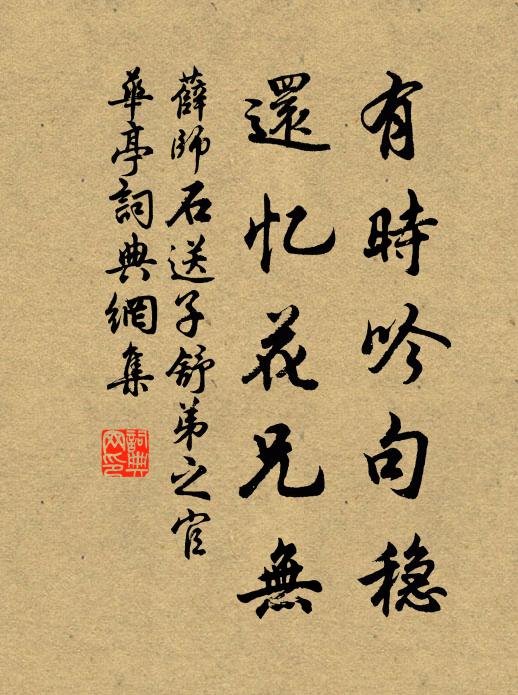 有時吟句稳
還忆花兄無
薛師石送子舒弟之官
華亭詞典網集
詞典網印